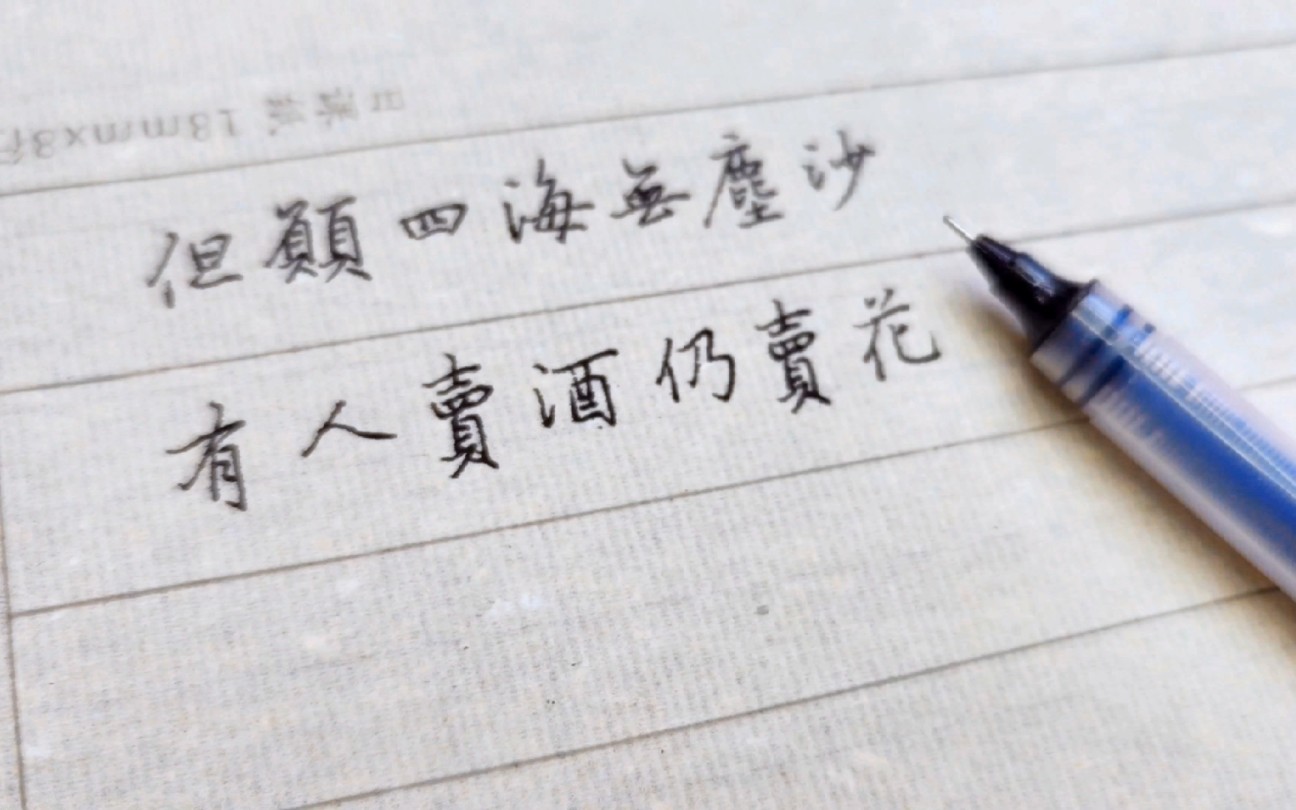 但願四海無塵沙
有人賣酒仍賣花